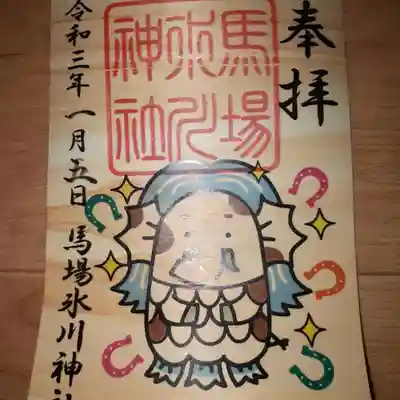 奉拝
馬場氷川神社
令和三年一月五日 馬場氷川神社